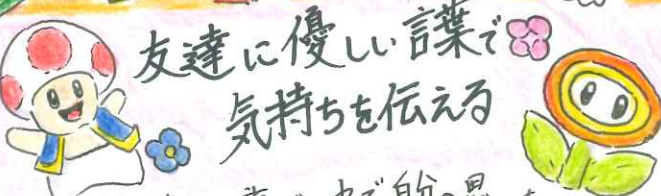 友達に優しい言葉で
気持ちを伝える